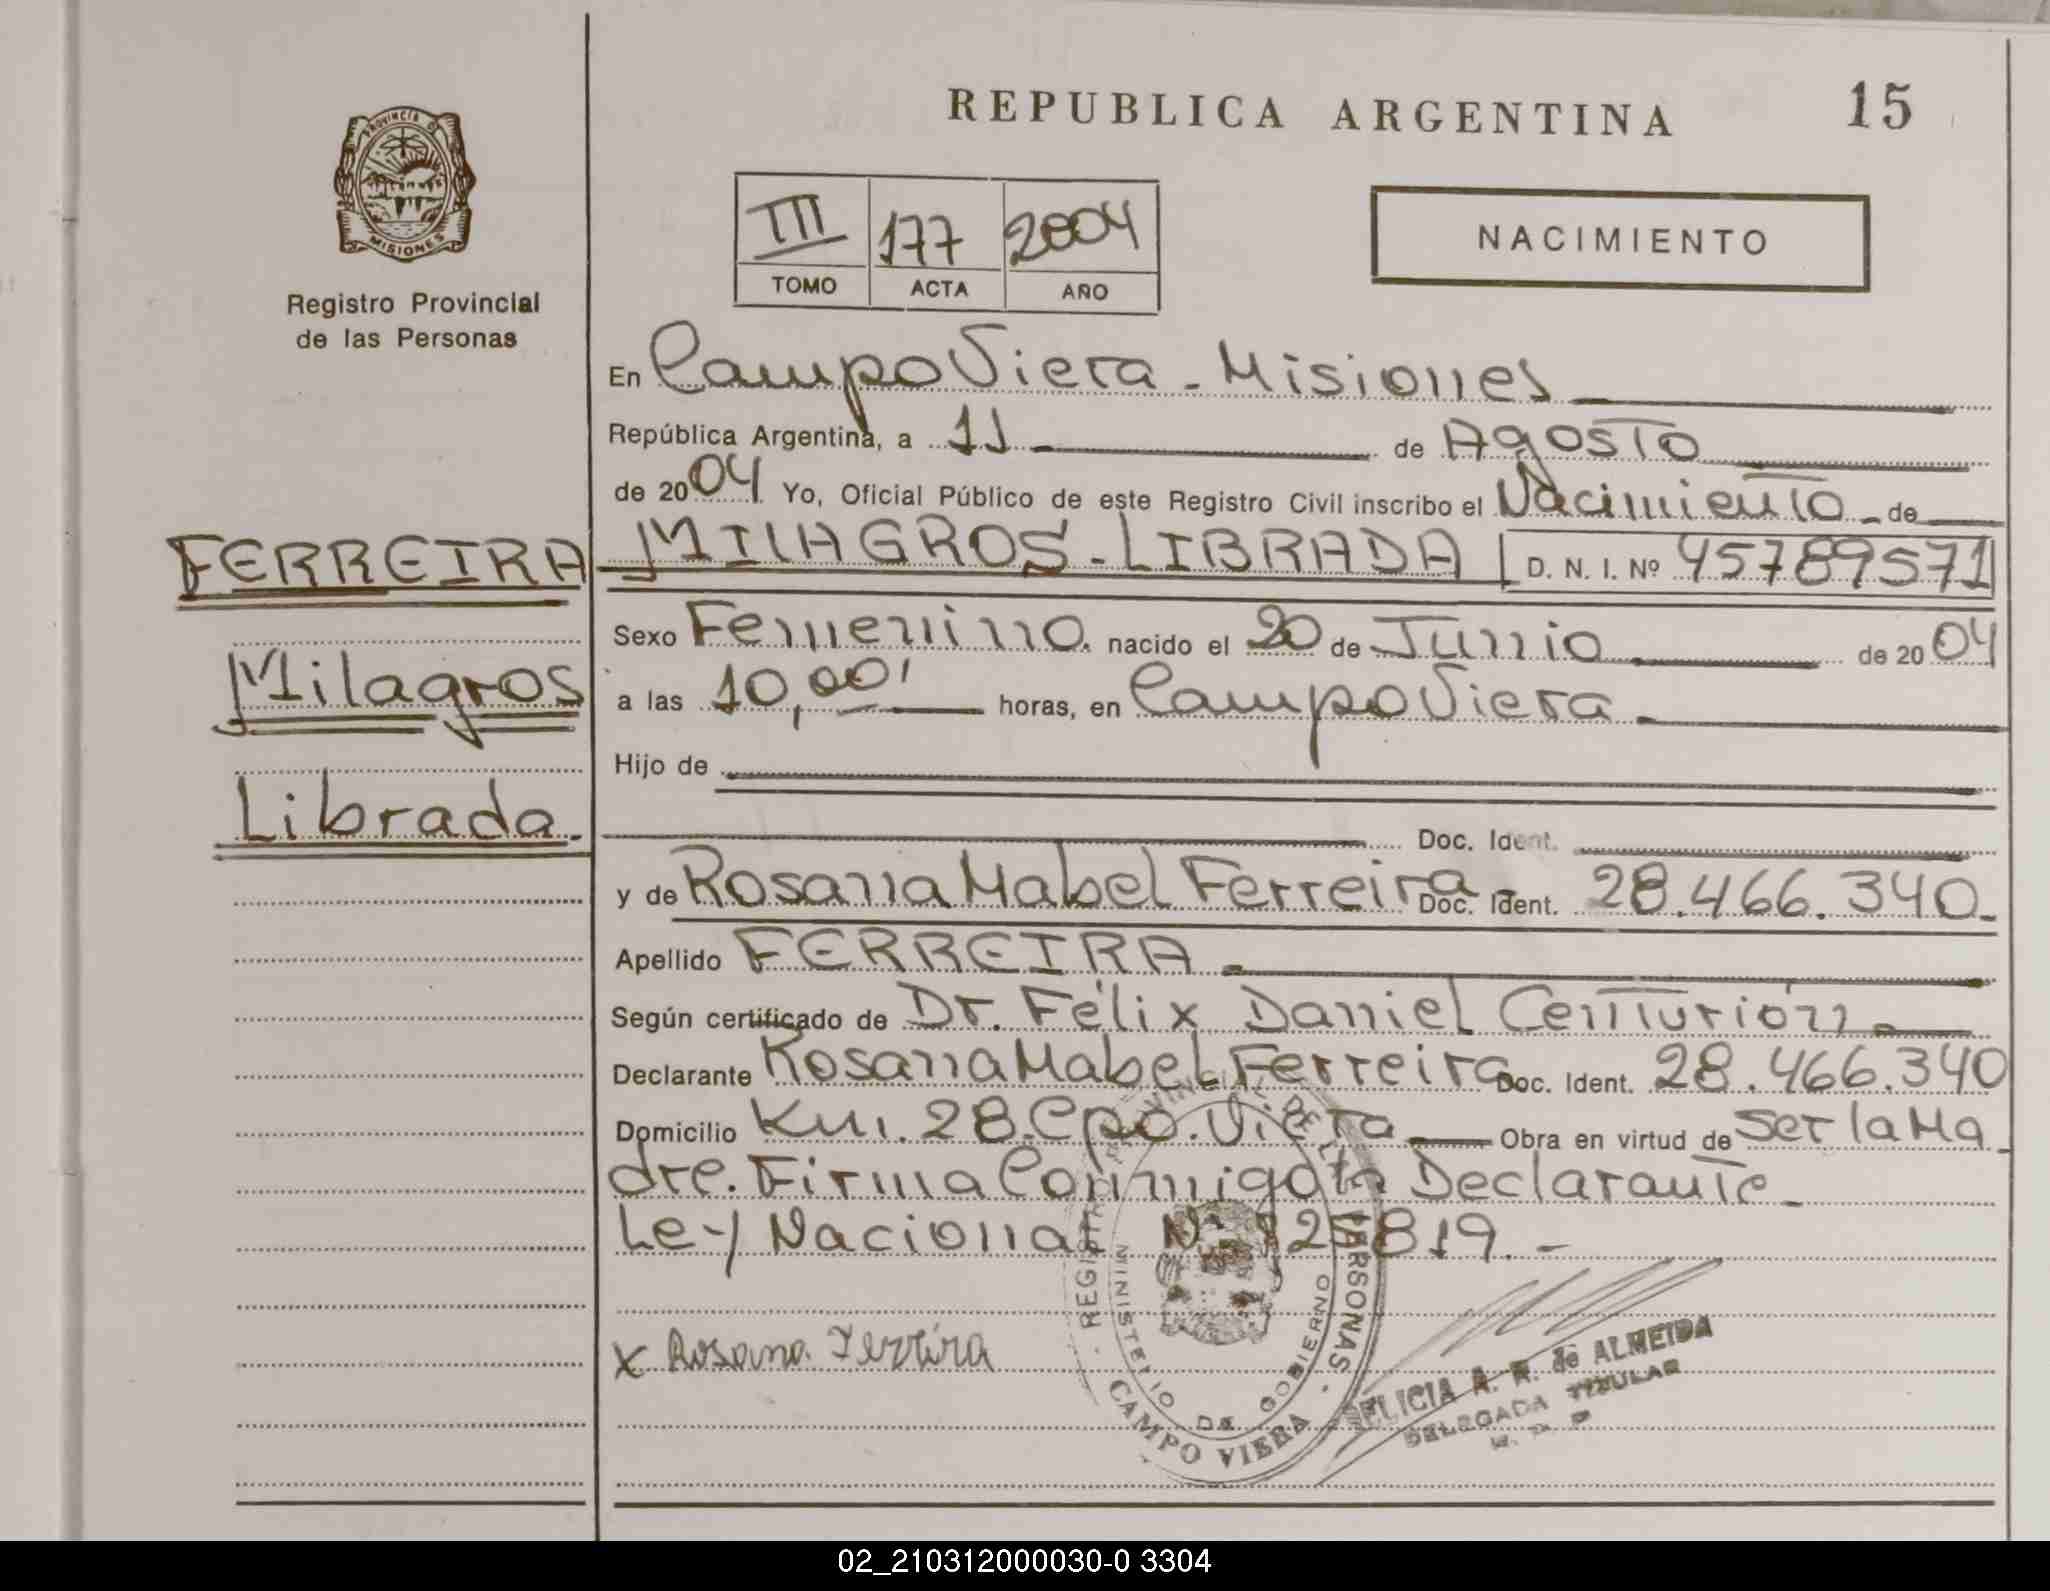 REPUBLICA ARGENTINA
15
PROVINCIA DE
MISIONES
Registro Provincial
de las Personas
III 177 2004
TOMO ACTA AÑO
NACIMIENTO
En Campo Viera - Misiones
República Argentina, a 11 de Agosto
de 2004 Yo, Oficial Público de este Registro Civil inscribo el Nacimiento - de
FERREIRA MILAGROS - LIBRADA D. N. I. Nº 45789571
Sexo Femenino. nacido el 20 de Junio de 2004
Milagros
a las 10,00' horas, en Campo Viera -
Hijo de
Librada.
Doc. Ident.
y de Rosana Mabel Ferreira Doc. Ident. 28.466.340.-
Apellido FERREIRA -
Según certificado de Dr. Félix Daniel Centurión -
Declarante Rosana Mabel Ferreira Doc. Ident. 28.466.340
Domicilio Km. 28. Cpo. Viera Obra en virtud de ser la Ma_
dre. Firma Conmigo la Declarante -
Ley Nacional Nº 25819. -
x Rosana Ferreira
REGISTRO PROVINCIAL DE LAS PERSONAS
MINISTERIO DE GOBIERNO
CAMPO VIERA
FELICIA A. R. de ALMEIDA
DELEGADA TITULAR
02_210312000030-0 3304